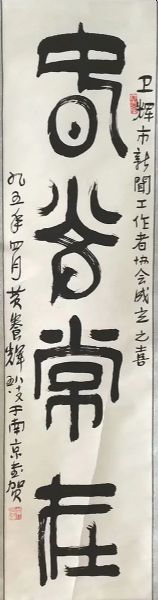 卫辉市新聞工作者协会成立之喜
春光常在
九五年四月黄養輝敬于南京书贺